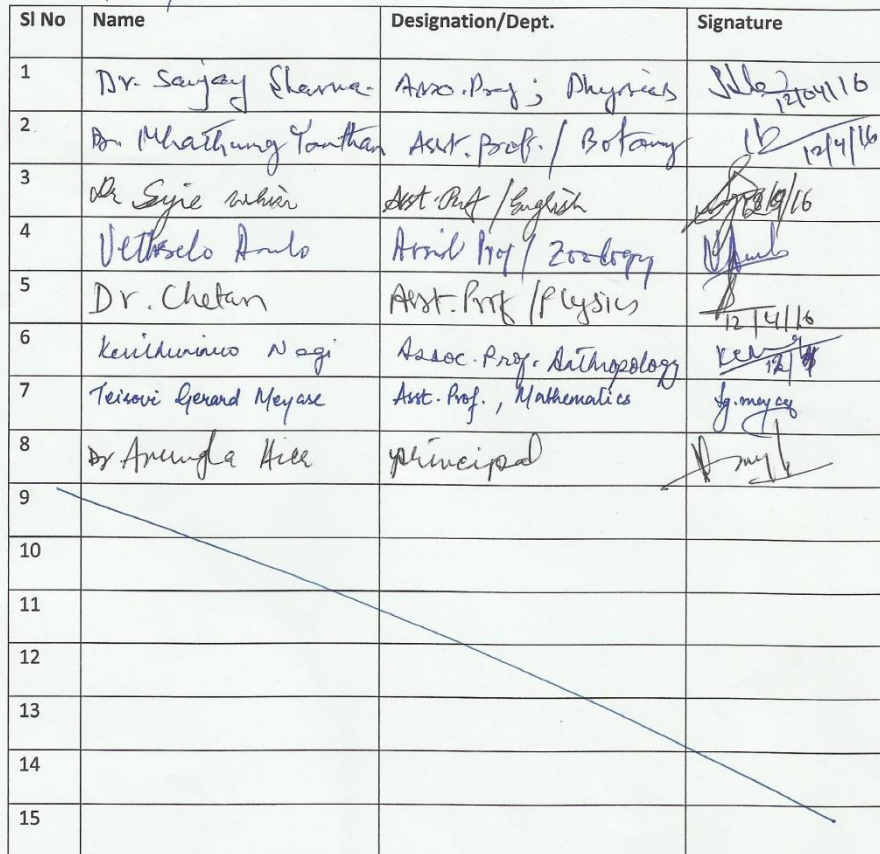 Sl No Name Designation/Dept. Signature
1 Dr. Sanjay Sharma. Asso. Prof ; Physics 12/04/16
2 Dr. Mhathung Yanthan Asst. Prof. / Botany 12/4/16
3 Dr Asst. Prof / English
4 Assist Prof / Zoology
5 Dr. Chetan Asst. Prof / Physics 12/4/16
6 Assoc. Prof. Anthropology
7 Teisovi Gerard Meyase Asst. Prof., Mathematics Tg. meyase
8 Dr principal
9
10
11
12
13
14
15